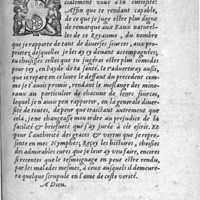 calement voué à la curiosité:
Affin que te rendant capable,
de ce que je juge estre plus digne
de remarque aux Eaux naturel-
les de ce Royaume, du nombre
que je rapporte de tant de diverses sources, aux pro-
prietez desquelles je les ay devant accompagnées,
tu choisisses celles que tu jugeras estre plus comodes
pour toy, en dayde de la santé, te r'adverteray aussi,
que ce repare en ce livre le deffaut du precedent com-
me je t'avois promis, rendant le meslange des mine-
raux au particulier de chacune de leurs sources,
lequel je n'avois peu rapporter, en la generale diversi-
té de toutes, de peur que traittant autrement que
cela, je ne changeasse mon ordre au prejudice de la
facilité & briefveté que j'ay jurée à cet escrit. Et
pour l'authorité des graces & vertus que je repre-
sente en mes Nymphes; Reçoy les histoires, choisies
des admirables cures que je leur ay veu faire, encore
si recentes que le tesmoignage en peut estre rendu,
par les malades mesmes, à ceux ausquels il demeure-
ra quelque scrupule en l'ame de ceste verité.
A Dieu.